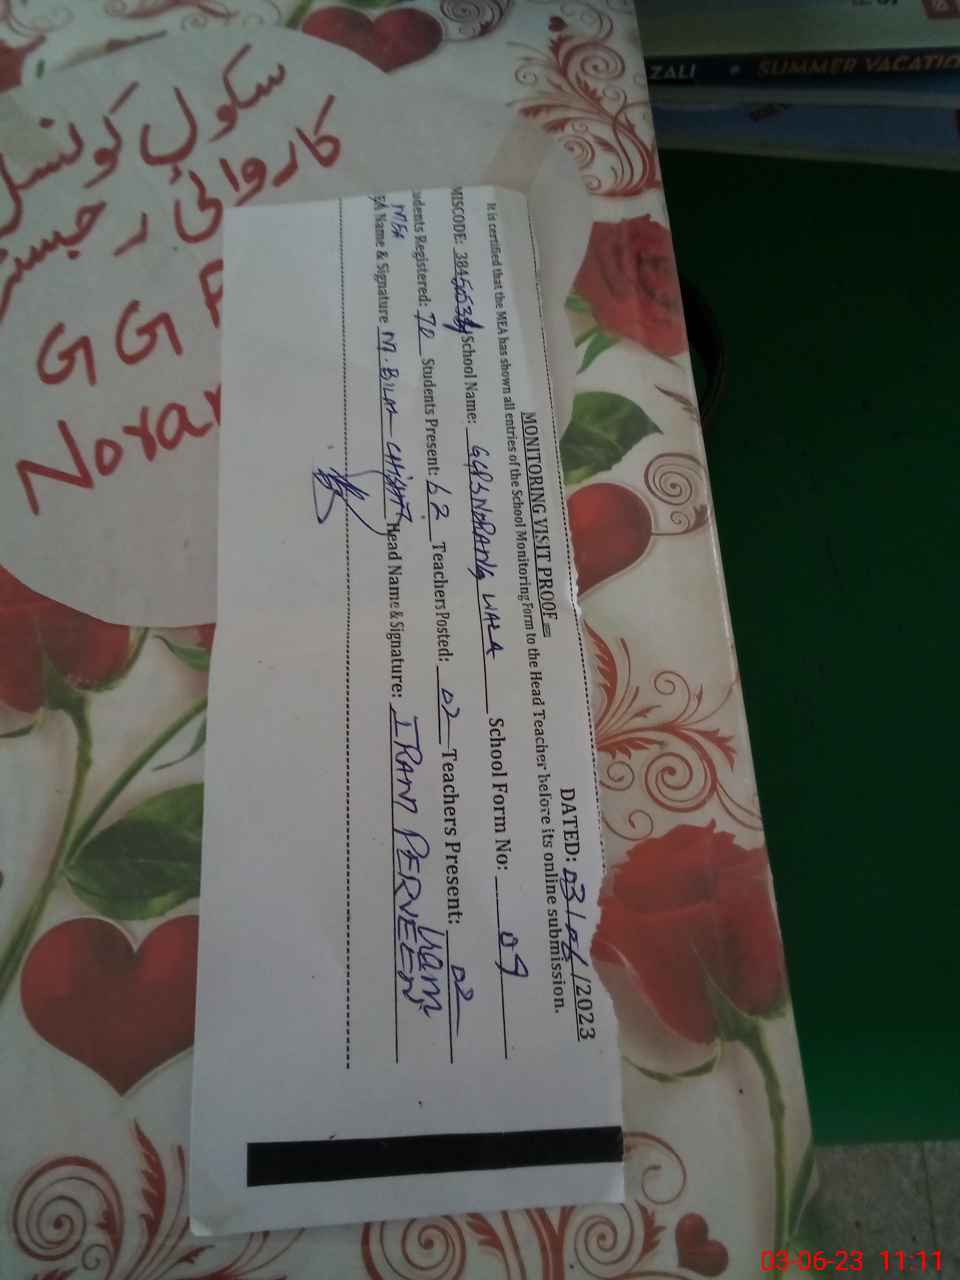 سکول کونسل
کاروائی رجسٹر
GGP
Noran
ZALI • SUMMER VACATIO
DATED: 03/06/2023
MONITORING VISIT PROOF
It is certified that the MEA has shown all entries of the School Monitoring Form to the Head Teacher before its online submission.
MISCODE: School Name: GGPS NORANG WALA School Form No: 09
udents Registered: 70 Students Present: 62 Teachers Posted: 02 Teachers Present: 02
MEA
EA Name & Signature M. BILAL CHISHTI Head Name & Signature: IRAM PERVEEN
Iram
03-06-23 11:11